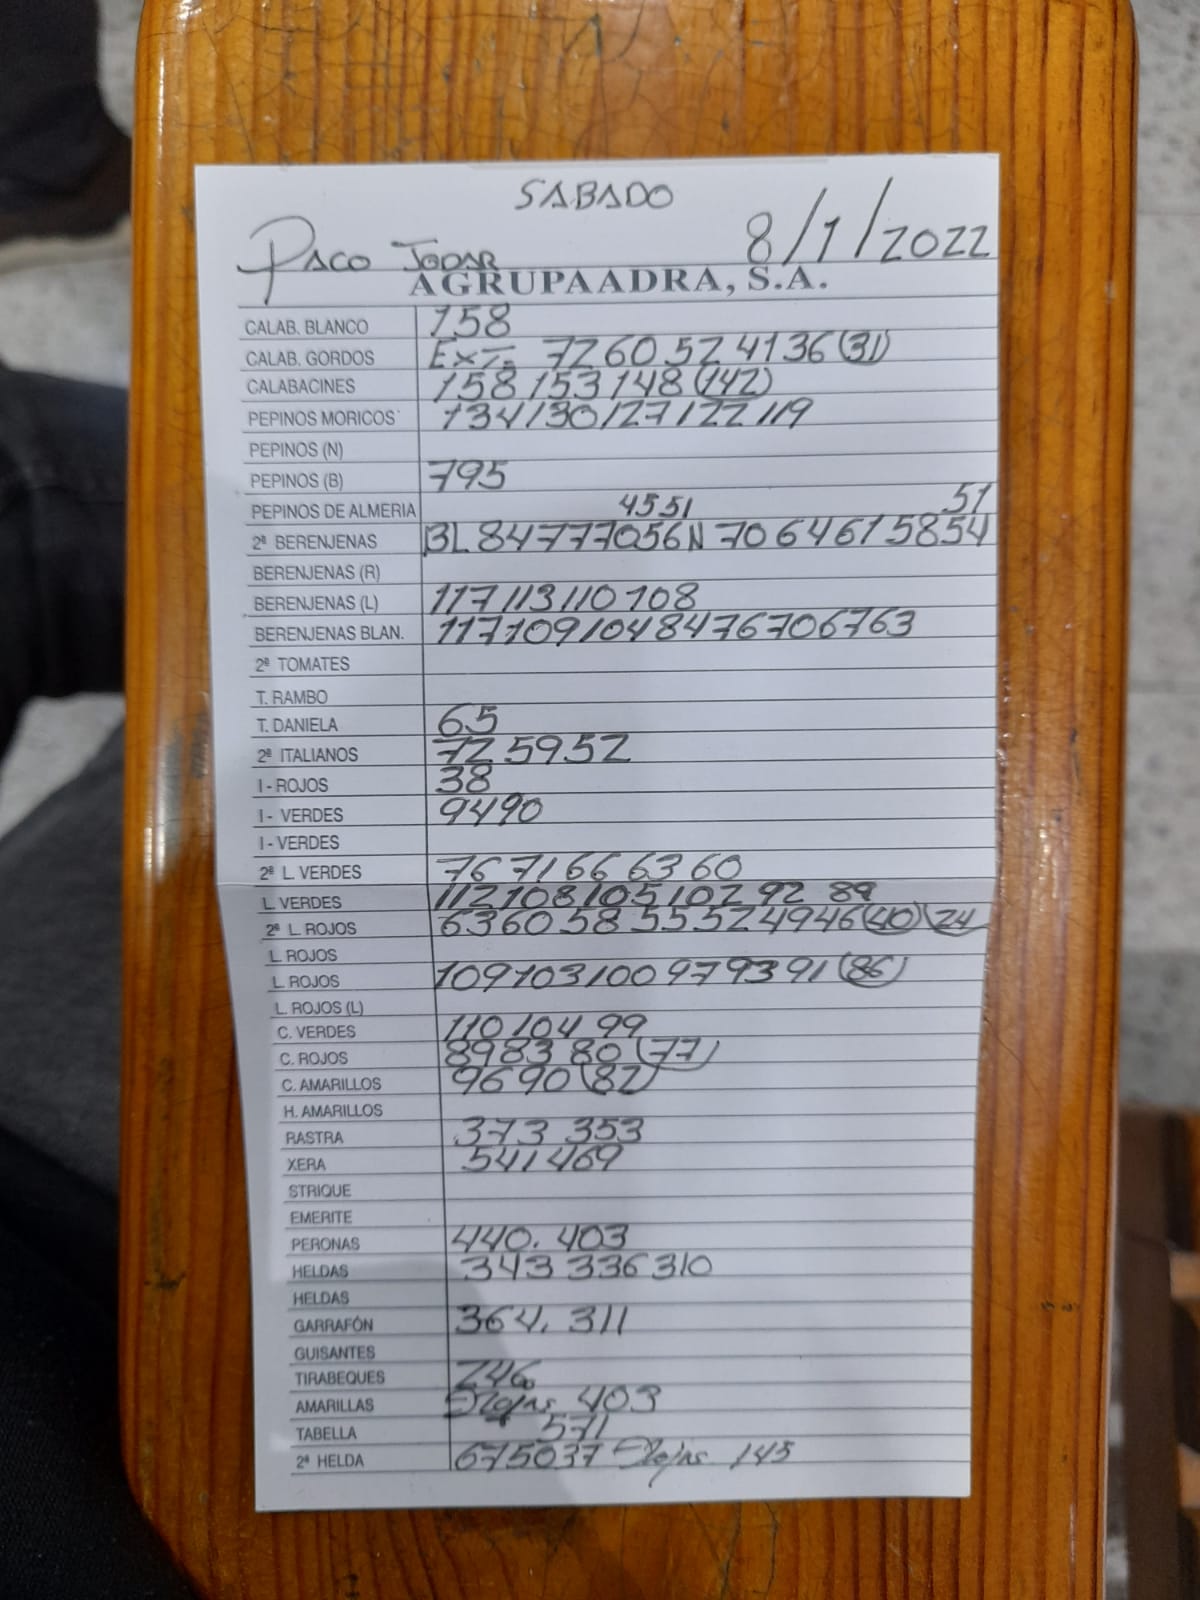 SABADO
PACO JODAR 8/1/2022
AGRUPAADRA, S.A.
CALAB. BLANCO 158
CALAB. GORDOS EXT. 72 60 52 41 36 (31)
CALABACINES 158 153 148 (142)
PEPINOS MORICOS 134 130 127 122 119
PEPINOS (N)
PEPINOS (B) 795
PEPINOS DE ALMERIA 45 51 51
2ª BERENJENAS BL 84 77 70 56 N 70 64 61 58 54
BERENJENAS (R)
BERENJENAS (L) 117 113 110 108
BERENJENAS BLAN. 117 109 104 84 76 70 67 63
2ª TOMATES
T. RAMBO
T. DANIELA 65
2ª ITALIANOS 72 59 52
I - ROJOS 38
I - VERDES 94 90
I - VERDES
2ª L. VERDES 76 71 66 63 60
L. VERDES 112 108 105 102 92 89
2ª L. ROJOS 63 60 58 55 52 49 46 (40) (24
L. ROJOS
L. ROJOS 109 103 100 97 93 91 (86)
L. ROJOS (L)
C. VERDES 110 104 99
C. ROJOS 89 83 80 (77)
C. AMARILLOS 96 90 (82)
H. AMARILLOS
RASTRA 373 353
XERA 541 469
STRIQUE
EMERITE
PERONAS 440. 403
HELDAS 343 336 310
HELDAS
GARRAFÓN 364. 311
GUISANTES
TIRABEQUES 246
AMARILLAS 403
TABELLA 571
2ª HELDA 67 50 37 145